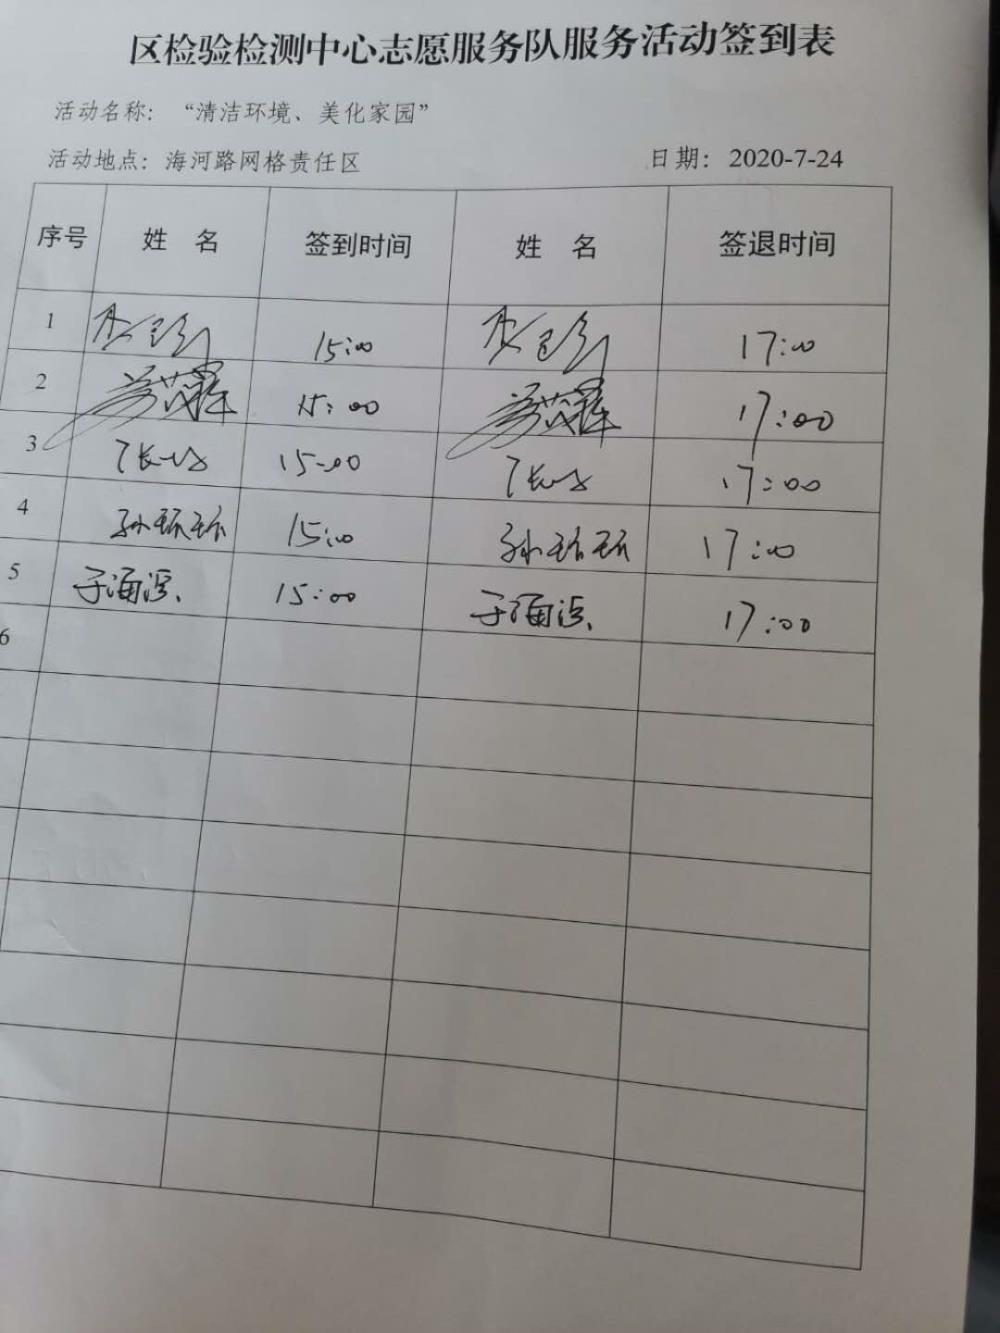 区检验检测中心志愿服务队服务活动签到表
活动名称：“清洁环境、美化家园”
活动地点：海河路网格责任区 日期：2020-7-24
序号 姓 名 签到时间 姓 名 签退时间
1 15:00 17:00
2 15:00 17:00
3 15:00 17:00
4 孙 15:00 孙 17:00
5 于海滨 15:00 于海滨 17:00
6